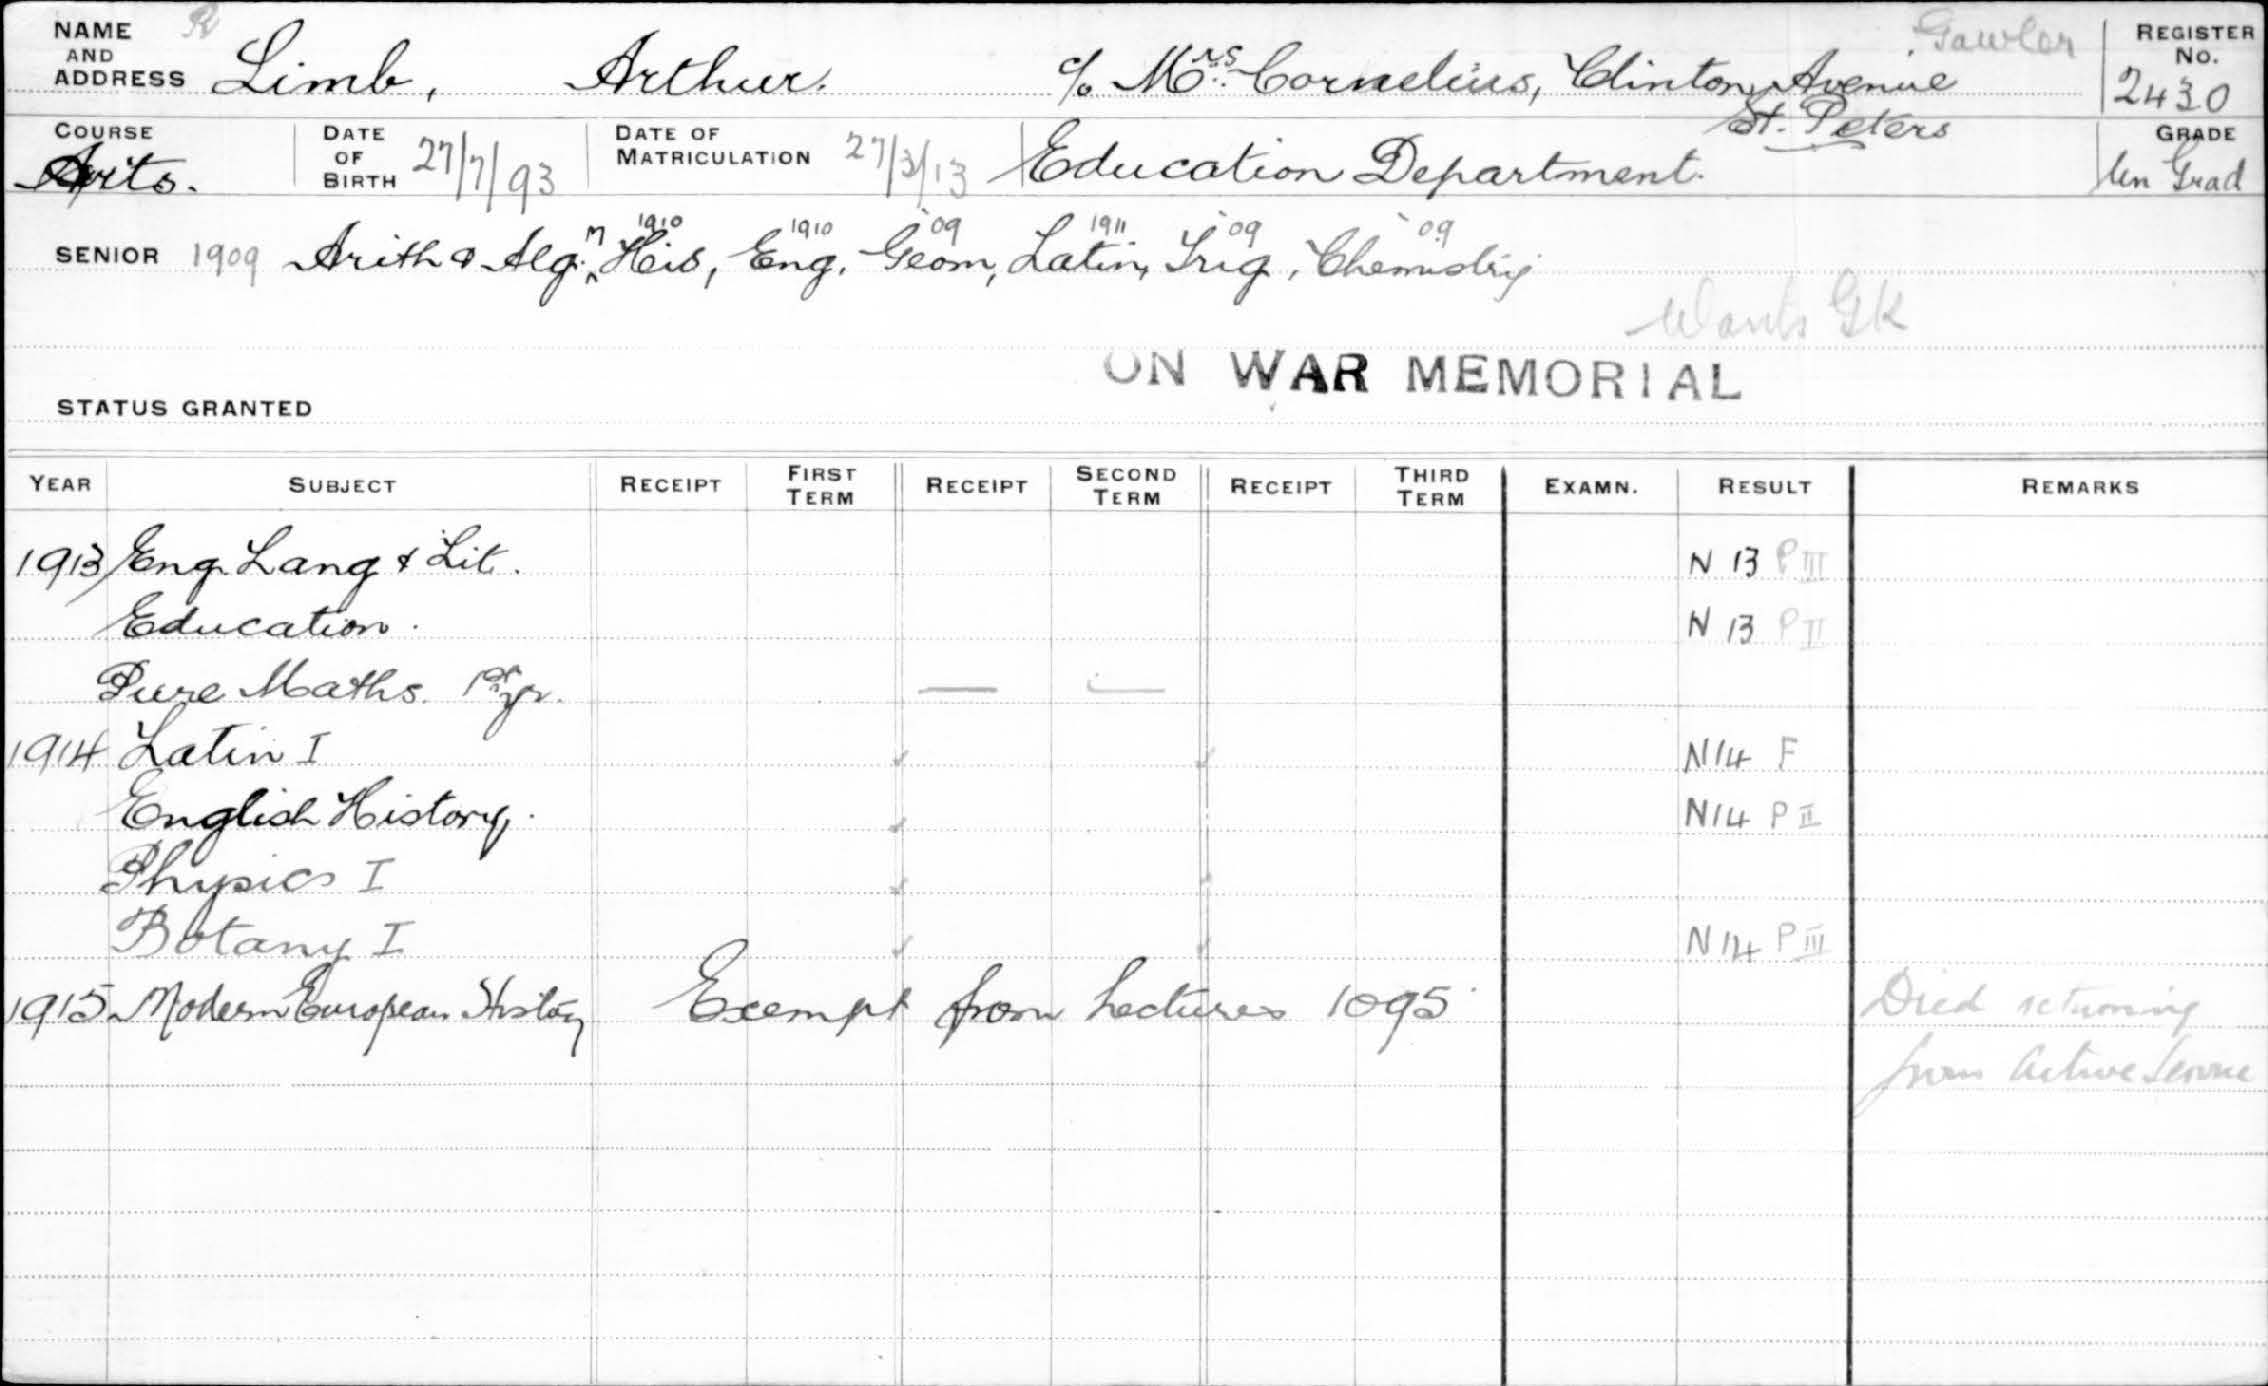 NAME AND ADDRESS Limb, Arthur. c/o Mrs. Cornelius, Clinton Avenue St. Peters Gawler REGISTER No. 2430
COURSE Arts. DATE OF BIRTH 27/7/93 DATE OF MATRICULATION 27/3/13 Education Department. GRADE Un Grad
1910 1910 '09 1911 '09 '09
SENIOR 1909 Arith & Alg. M His, Eng, Geom, Latin, Trig, Chemistry
Wants Gk
ON WAR MEMORIAL
STATUS GRANTED
YEAR SUBJECT RECEIPT FIRST TERM RECEIPT SECOND TERM RECEIPT THIRD TERM EXAMN. RESULT REMARKS
1913 Eng. Lang & Lit. N 13 P III
Education. N 13 P II
Pure Maths. 1st yr. — —
1914 Latin I ✓ ✓ N14 F
English History. ✓ N14 P II
Physics I ✓ ✓
Botany I ✓ ✓ N14 P III
1915 Modern European History Exempt from Lectures 1095 Died returning
from Active Service